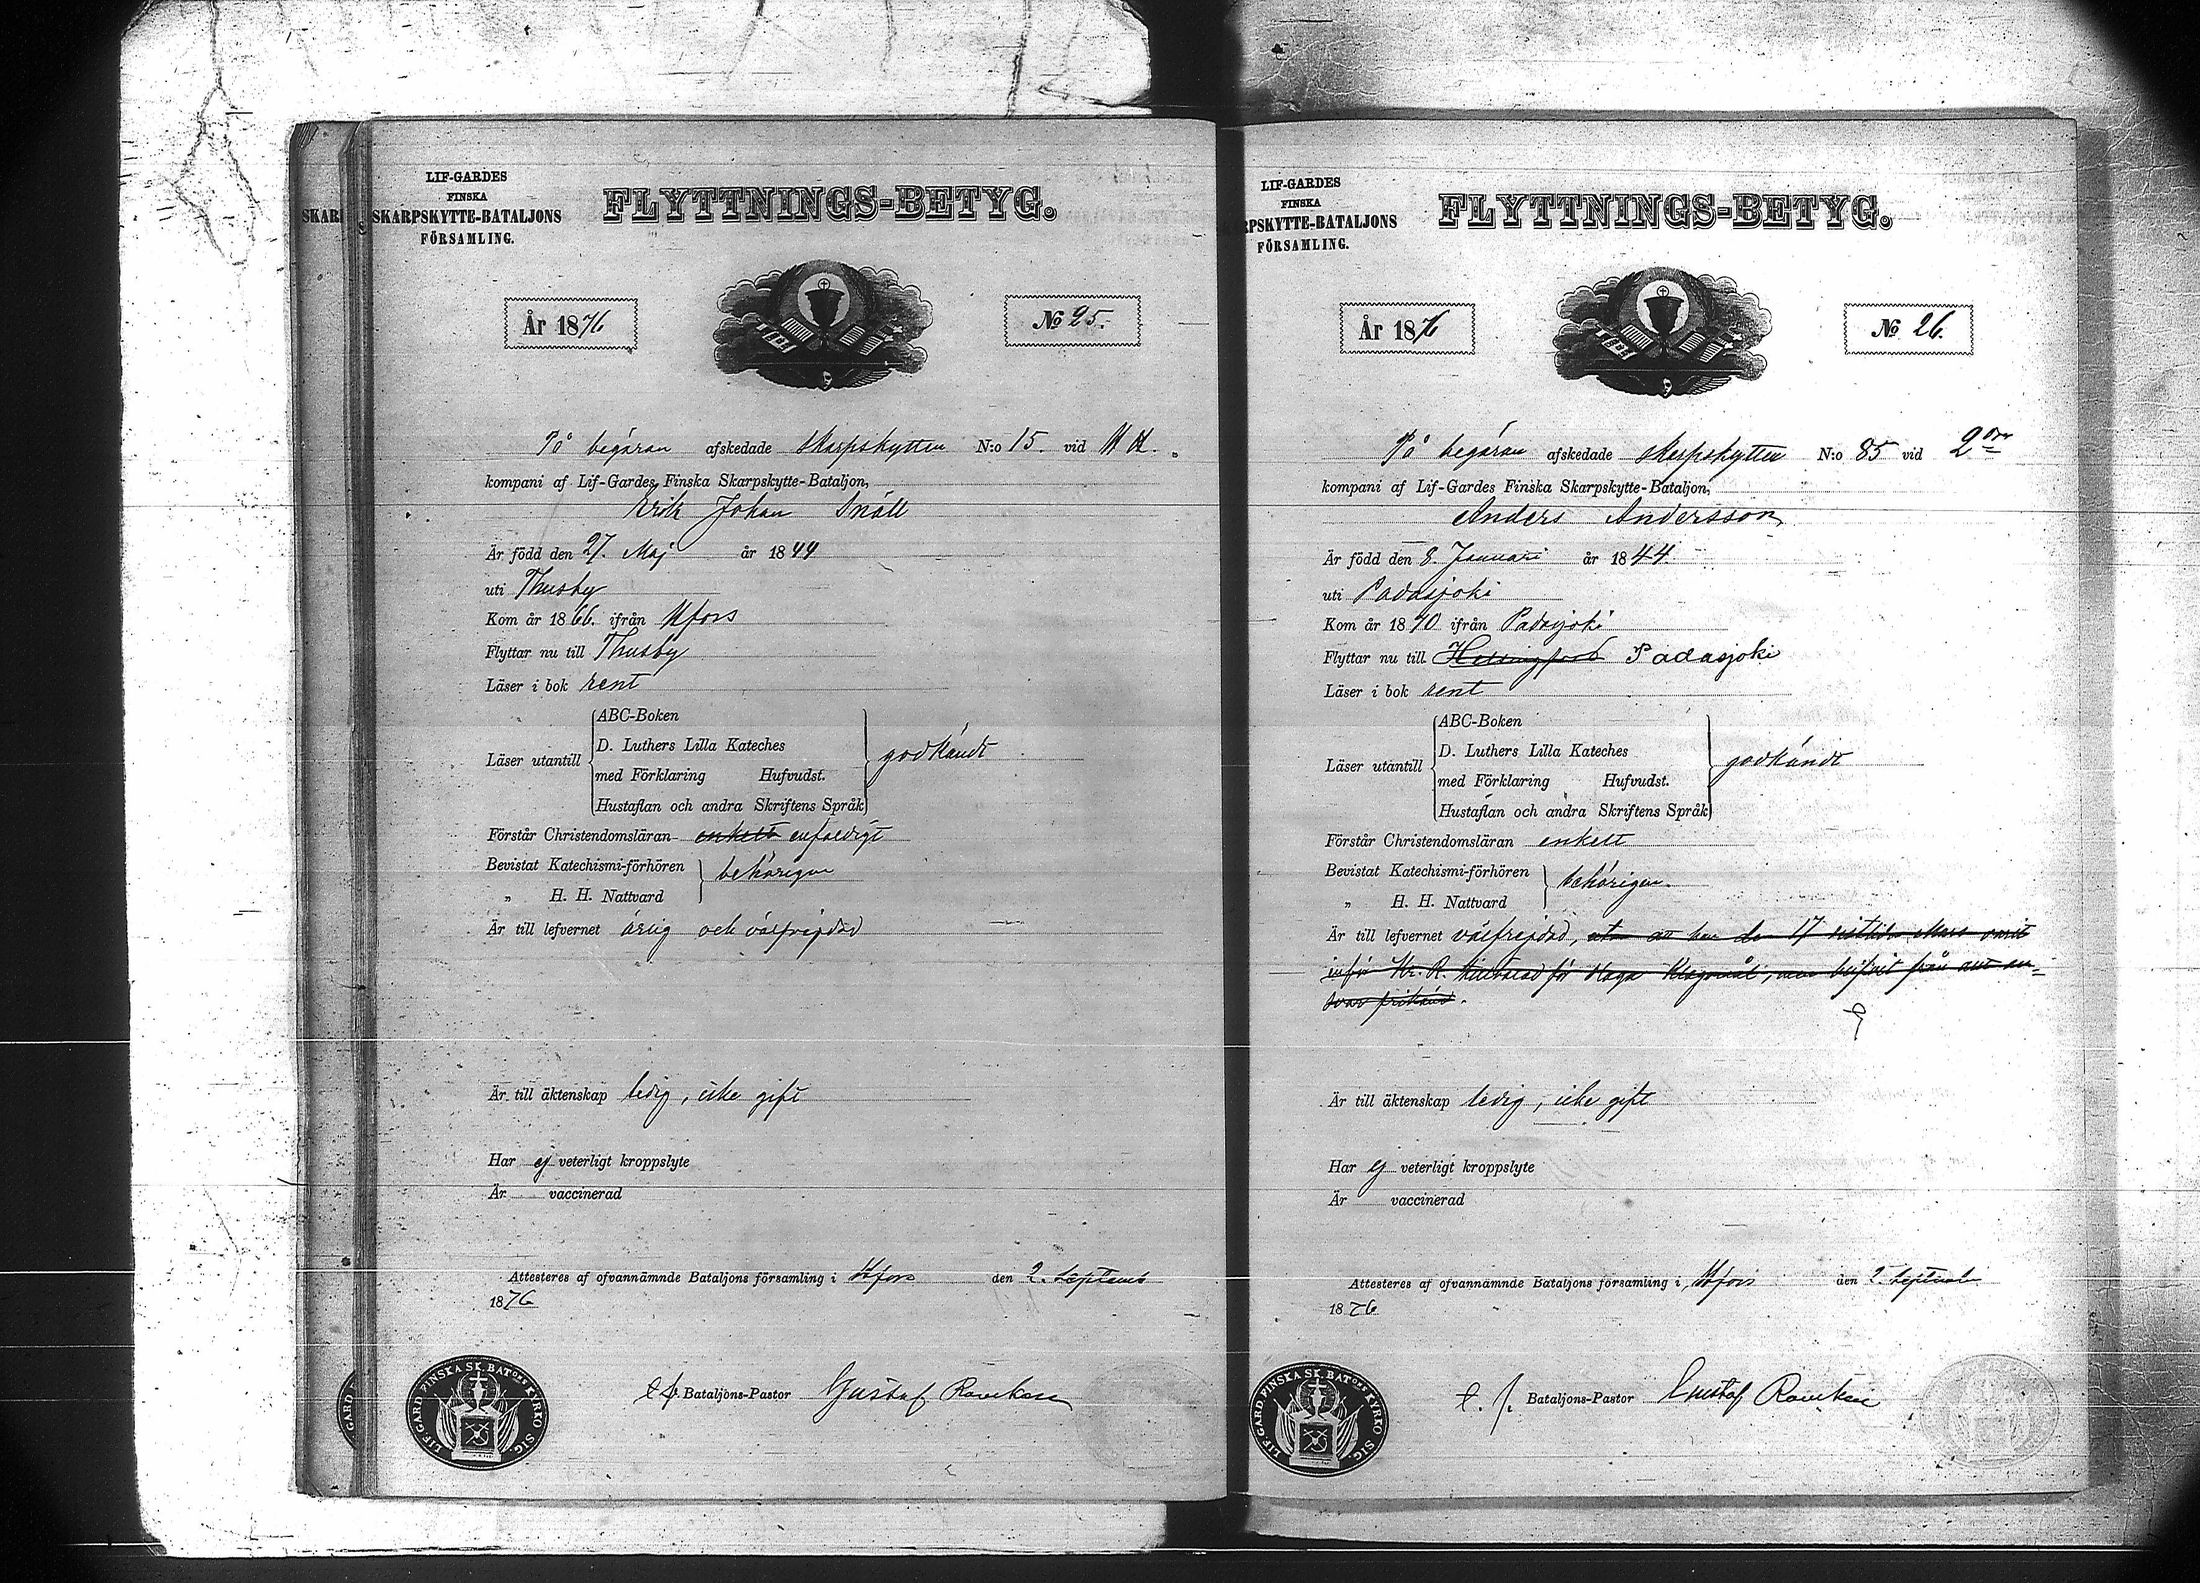 SKAR
LIF-GARDES
FINSKA
SKARPSKYTTE-BATALJONS
FÖRSAMLING.
FLYTTNINGS-BETYG.
År 1876
No 25.
På begäran afskedade skarpskytten N:o 15. vid
kompani af Lif-Gardes Finska Skarpskytte-Bataljon,
Erik Johan Snäll
Är född den 27. Maj år 1844
uti Thusby
Kom år 1866. ifrån Hfors
Flyttar nu till Thusby
Läser i bok rent
ABC-Boken
D. Luthers Lilla Kateches
Läser utantill godkändt
med Förklaring Hufvudst.
Hustaflan och andra Skriftens Språk
Förstår Christendomsläran enkelt enfaldigt
Bevistat Katechismi-förhören behörigen
„ H. H. Nattvard
Är till lefvernet ärlig och välfrejdad
Är till äktenskap ledig, icke gift
Har ej veterligt kroppslyte
Är vaccinerad
Attesteres af ofvannämnde Bataljons församling i Hfors den 2. Septemb
1876
Bataljons-Pastor Gustaf
LIF.GARD.FINSKA SK.BATONS KYRKO SIG.
LIF-GARDES
FINSKA
RPSKYTTE-BATALJONS
FÖRSAMLING.
FLYTTNINGS-BETYG.
År 1876
No 26.
På begäran afskedade skarpskytten N:o 85 vid 2dra
kompani af Lif-Gardes Finska Skarpskytte-Bataljon,
Anders Andersson
Är född den 8. Januari år 1844.
uti Padasjoki
Kom år 1870 ifrån Padasjoki
Flyttar nu till Helsingfors Padasjoki
Läser i bok rent
ABC-Boken
D. Luthers Lilla Kateches
Läser utantill godkändt
med Förklaring Hufvudst.
Hustaflan och andra Skriftens Språk
Förstår Christendomsläran enkelt
Bevistat Katechismi-förhören behörigen
„ H. H. Nattvard
Är till lefvernet välfrejdad, utan att han den 17
för
Är till äktenskap ledig, icke gift
Har ej veterligt kroppslyte
Är vaccinerad
Attesteres af ofvannämnde Bataljons församling i Hfors den 2 Septemb
1876
Bataljons-Pastor Gustaf
LIF.GARD.FINSKA SK.BATONS KYRKO SIG.